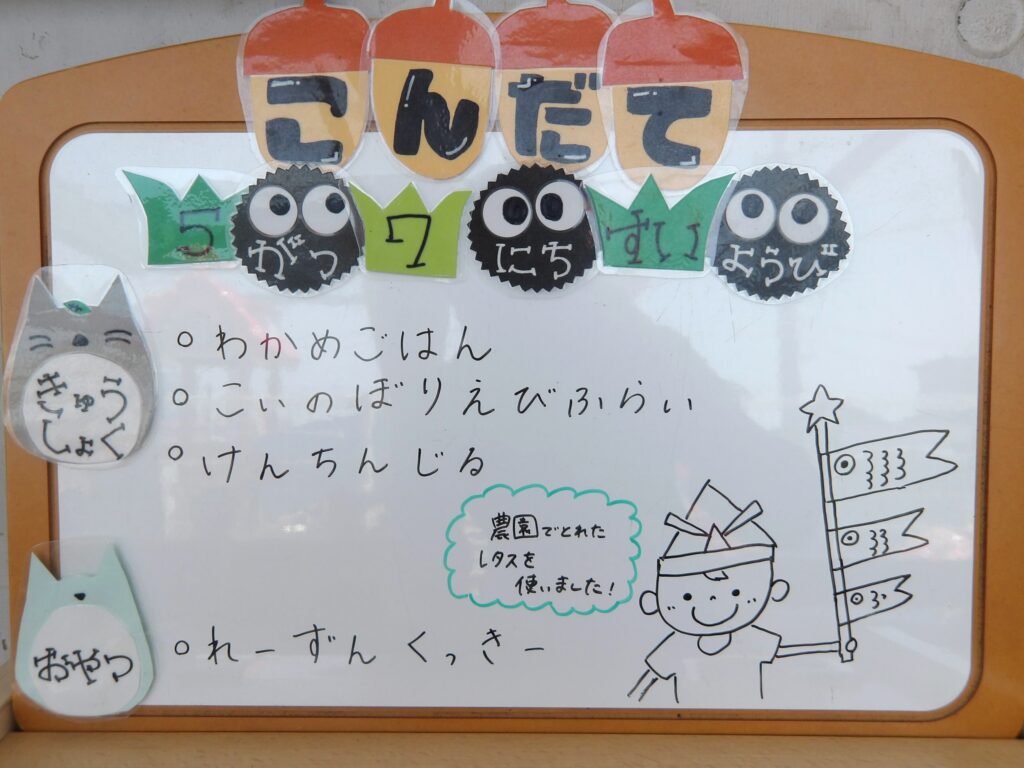 こんだて
5がつ7にちすいようび
きゅうしょく
○わかめごはん
○こいのぼりえびふらい
○けんちんじる
農園でとれた
レタスを
使いました!
おやつ
○れーずんくっきー